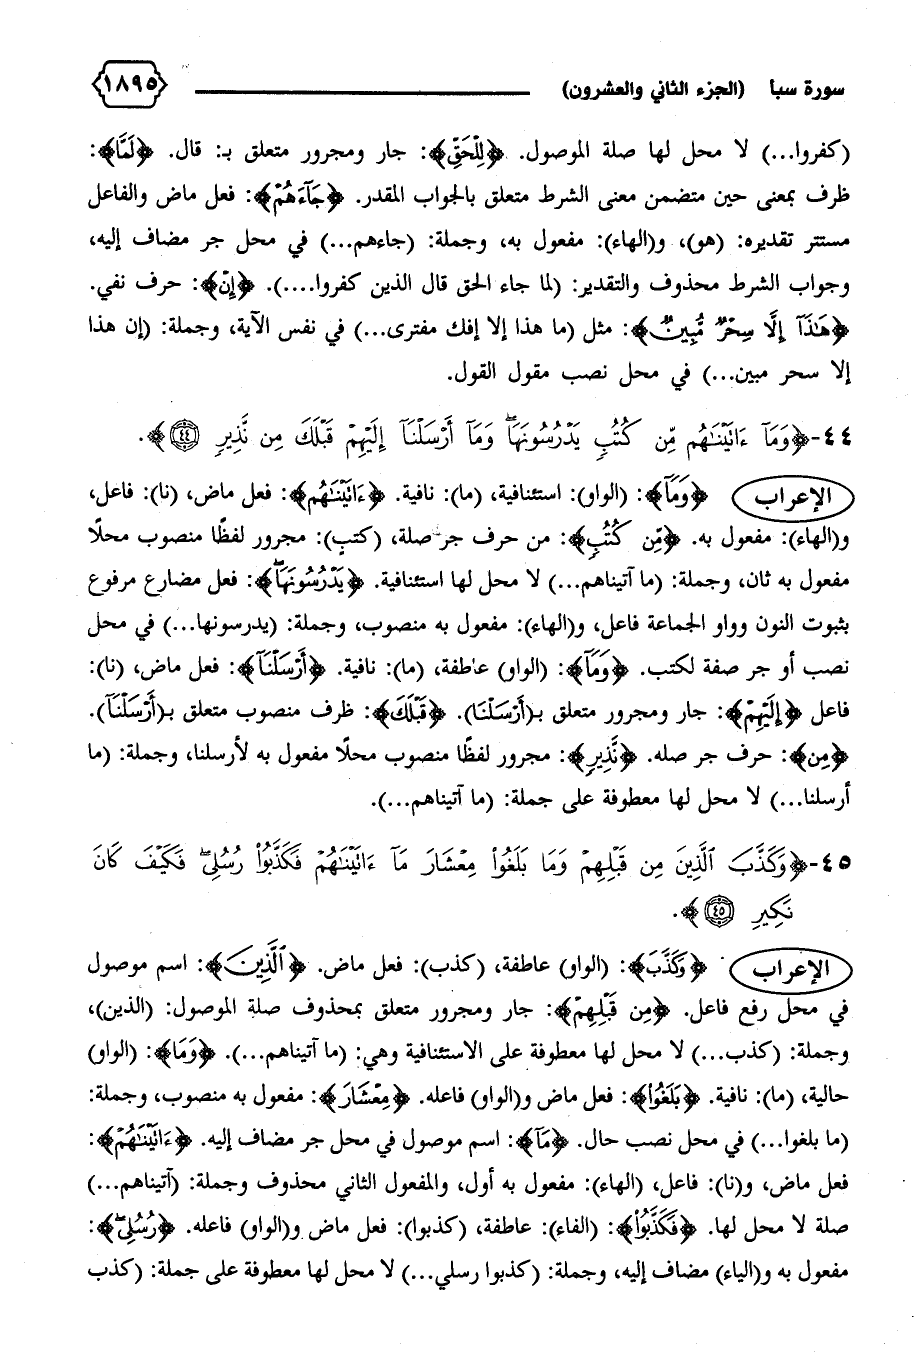 سورة سبأ (الجزء الثاني والعشرون) ١٨٩٥
(كفروا...) لا محل لها صلة الموصول. ﴿لِلْحَقِّ﴾: جار ومجرور متعلق بـ: قال. ﴿لَمَّا﴾:
ظرف بمعنى حين متضمن معنى الشرط متعلق بالجواب المقدر. ﴿جَآءَهُمْ﴾: فعل ماض والفاعل
مستتر تقديره: (هو)، و(الهاء): مفعول به، وجملة: (جاءهم...) في محل جر مضاف إليه،
وجواب الشرط محذوف والتقدير: (لما جاء الحق قال الذين كفروا....). ﴿إِنْ﴾: حرف نفي.
﴿هَٰذَآ إِلَّا سِحْرٌ مُّبِينٌ﴾: مثل (ما هذا إلا إفك مفترى...) في نفس الآية، وجملة: (إن هذا
إلا سحر مبين...) في محل نصب مقول القول.
٤٤-﴿وَمَآ ءَاتَيْنَٰهُم مِّن كُتُبٍ يَدْرُسُونَهَا ۖ وَمَآ أَرْسَلْنَآ إِلَيْهِمْ قَبْلَكَ مِن نَّذِيرٍ ٤٤﴾.
الإعراب ﴿وَمَآ﴾: (الواو): استئنافية، (ما): نافية. ﴿ءَاتَيْنَٰهُم﴾: فعل ماض، (نا): فاعل،
و(الهاء): مفعول به. ﴿مِّن كُتُبٍ﴾: من حرف جر صلة، (كتب): مجرور لفظًا منصوب محلًا
مفعول به ثان، وجملة: (ما آتيناهم...) لا محل لها استئنافية. ﴿يَدْرُسُونَهَا ۖ﴾: فعل مضارع مرفوع
بثبوت النون وواو الجماعة فاعل، و(الهاء): مفعول به منصوب، وجملة: (يدرسونها...) في محل
نصب أو جر صفة لكتب. ﴿وَمَآ﴾: (الواو) عاطفة، (ما): نافية. ﴿أَرْسَلْنَآ﴾: فعل ماض، (نا):
فاعل ﴿إِلَيْهِمْ﴾: جار ومجرور متعلق بـ(أَرْسَلْنَا). ﴿قَبْلَكَ﴾: ظرف منصوب متعلق بـ(أَرْسَلْنَآ).
﴿مِن﴾: حرف جر صله. ﴿نَّذِيرٍ﴾: مجرور لفظًا منصوب محلًا مفعول به لأرسلنا، وجملة: (ما
أرسلنا...) لا محل لها معطوفة على جملة: (ما آتيناهم...).
٤٥-﴿وَكَذَّبَ ٱلَّذِينَ مِن قَبْلِهِمْ وَمَا بَلَغُوا۟ مِعْشَارَ مَآ ءَاتَيْنَٰهُمْ فَكَذَّبُوا۟ رُسُلِى ۖ فَكَيْفَ كَانَ
نَكِيرِ ٤٥﴾.
الإعراب ﴿وَكَذَّبَ﴾: (الواو) عاطفة، (كذب): فعل ماض. ﴿ٱلَّذِينَ﴾: اسم موصول
في محل رفع فاعل. ﴿مِن قَبْلِهِمْ﴾: جار ومجرور متعلق بمحذوف صلة الموصول: (الذين)،
وجملة: (كذب...) لا محل لها معطوفة على الاستئنافية وهي: (ما آتيناهم...). ﴿وَمَا﴾: (الواو)
حالية، (ما): نافية. ﴿بَلَغُوا۟﴾: فعل ماض و(الواو) فاعله. ﴿مِعْشَارَ﴾: مفعول به منصوب، وجملة:
(ما بلغوا...) في محل نصب حال. ﴿مَآ﴾: اسم موصول في محل جر مضاف إليه. ﴿ءَاتَيْنَٰهُمْ﴾:
فعل ماض، و(نا): فاعل، (الهاء): مفعول به أول، والمفعول الثاني محذوف وجملة: (آتيناهم...)
صلة لا محل لها. ﴿فَكَذَّبُوا۟﴾: (الفاء): عاطفة، (كذبوا): فعل ماض و(الواو) فاعله. ﴿رُسُلِى ۖ﴾:
مفعول به و(الياء) مضاف إليه، وجملة: (كذبوا رسلي...) لا محل لها معطوفة على جملة: (كذب